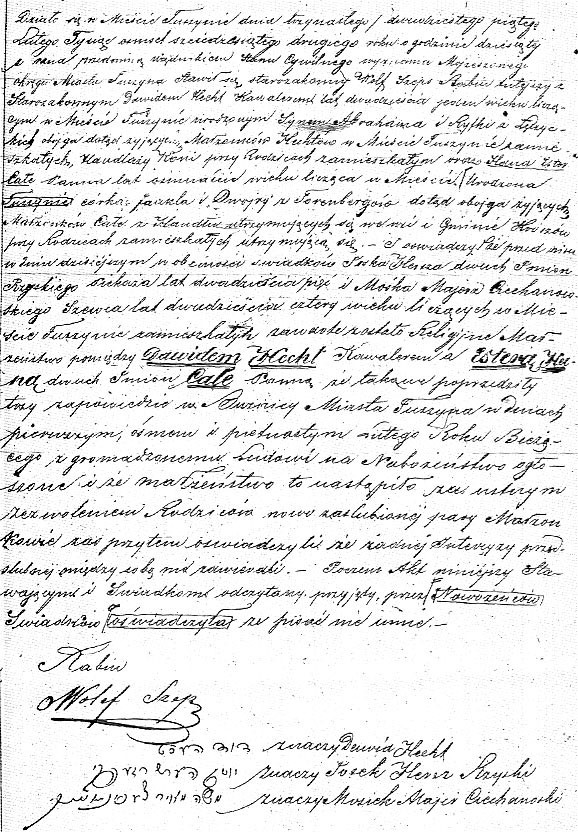 Działo się w Mieście Tuszynie dnia trzynastego / dwudziestego piątego
Lutego Tysiąc ośmset sześćdziesiątego drugiego roku o godzinie dziesiąty
z rana przedemną Urzędnikiem Stanu Cywilnego wyznania Mojżeszowego
Miasta Tuszyna stawił się starozakonny Wolf Szeps Rabin tutejszy z
Starozakonnym Dawidem Hecht Kawalerem lat dwadzieścia jeden wieku liczą-
cym w Mieście Tuszynie urodzonym Synem Abrahama i Ryfki z
obojga dotąd żyjących Małżonków Hechtów w Mieście Tuszynie zamie-
szkałych, Handlarzy przy Rodzicach zamieszkałym oraz Hana Ester
Cale Panna lat ośmnaście wieku licząca w Mieście Urodzona
Tuszynie córka Jankla i Dwojry z Torenbergów dotąd obojga żyjących
Małżonków Cale z Handlu utrzymujących się we wsi i Gminie
przy Rodzicach zamieszkałych utrzymująca się. – I oświadczył że przed nim
w dniu dzisiejszym w obecności świadków Joska Hersza dwuch Imion
Rzęskiego lat dwadzieścia pięć i Mośka Majera Ciechanow-
skiego Szewca lat dwadzieścia cztery wieku liczących w Mie-
ście Tuszynie zamieszkałych zawarte zostało Religijne Mał-
żeństwo pomiędzy Dawidem Hecht Kawalerem a Esterą Ha-
ną dwuch Imion Cale Panną, że takowe poprzedziły
trzy zapowiedzie w Bużnicy Miasta Tuszyna w dniach
pierwszym, ósmem i piętnastym Lutego Roku Bieżą-
cego zgromadzonemu ludowi na Nabożeństwo ogło-
szone i że małżeństwo to nastąpiło za ustnym
zezwoleniem Rodziców nowo zaślubionej pary Małżon
kowie zaś przytem oświadczyli że żadnej Intercyzy przed-
ślubnej między sobą nie zawierali. – Poczem Akt niniejszy Sta-
wającymi i Świadkom odczytany, przyjęty, przez Nowożeńców
Świadków oświadczyła że pisać nie umie. –
Rabin
Wolf Szeps
דוד העכט znaczy Dawid Hecht
יוסק הערש znaczy Josek Hersz Rzęski
משה מאיר znaczy Mosiek Majer Ciechanoski